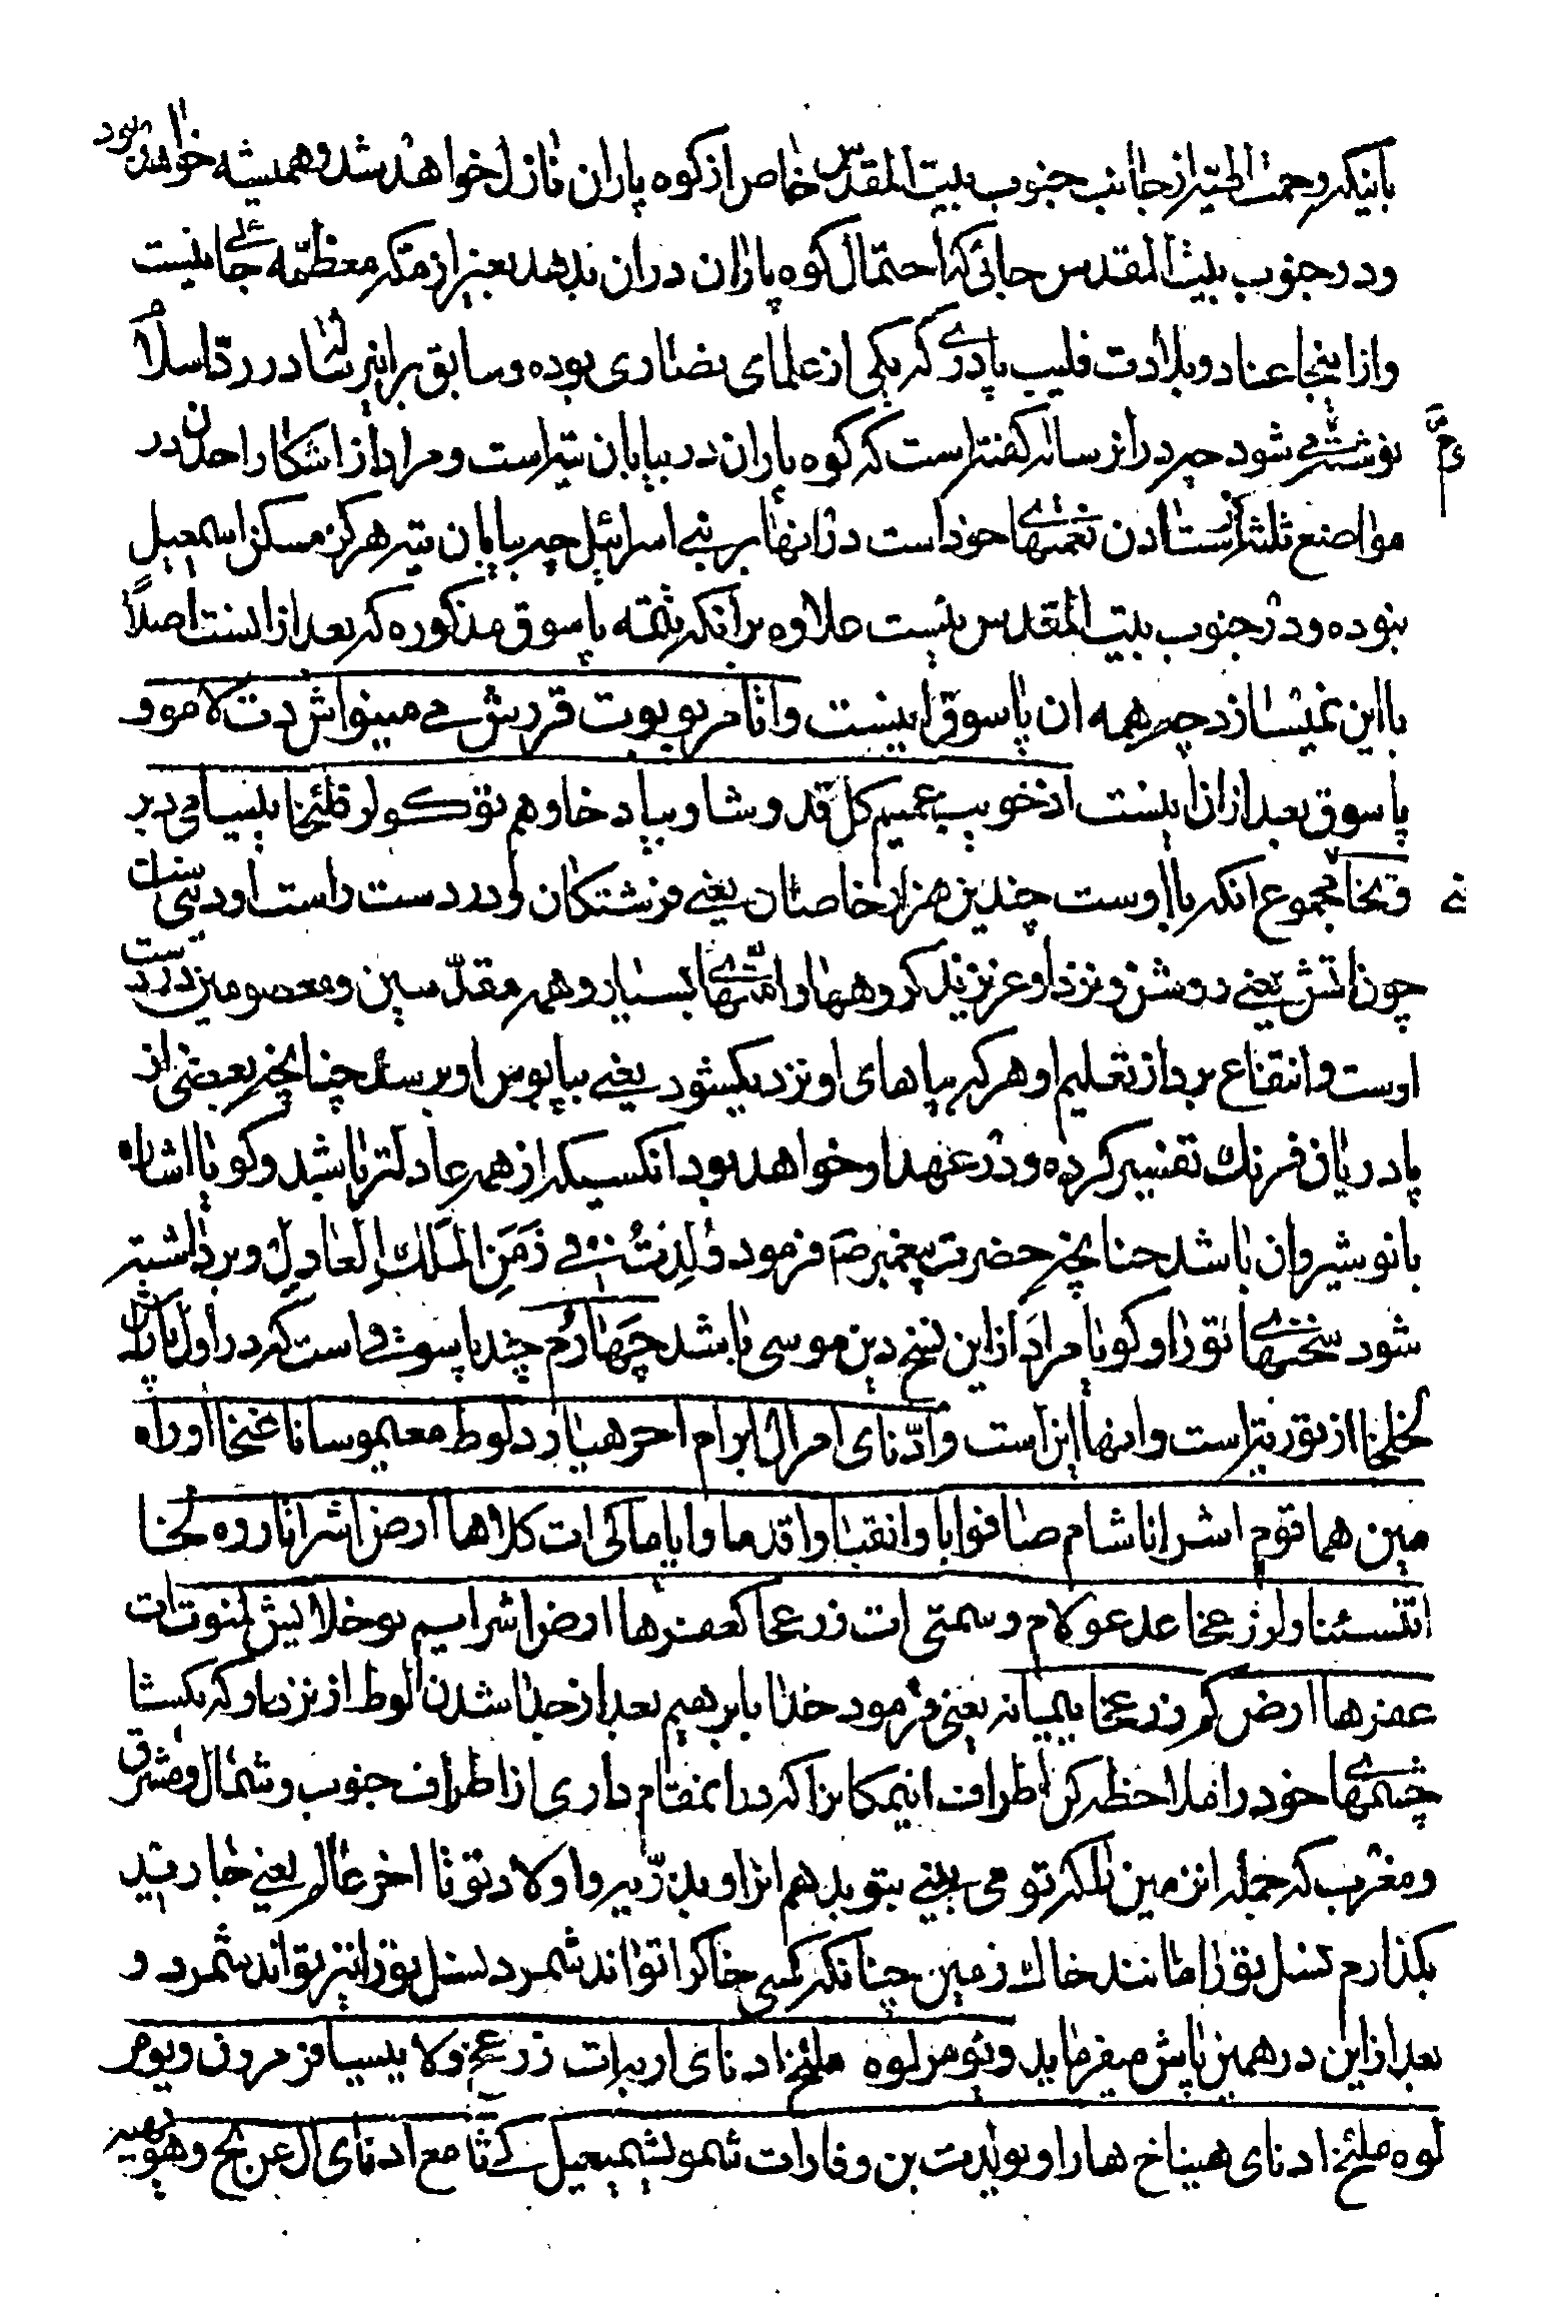 بانیکه رحمت الهیه از جانب جنوب بیت المقدس خاص از کوه پاران نازل خواهد شد و همیشه خواهد بود
و در جنوب بیت المقدس جائی که احتمال کوه پاران دران بدهند بغیر از مکه معظمه جائے نیست
و از اینجا عناد و بلادت فلیپ پادری که یکی از علمای نصاری بوده و سابق براین رساله در رد اسلام
نوشته می شود چه دران رساله گفته است که کوه پاران در بیابان تیه است و مراد از اشکارا شدن در
مواضع ثلثه فرستادن نعمتهای خود است در انها بر بنی اسرائیل چه بیابان تیه هرگز مسکن اسمعیل
نبوده و در جنوب بیت المقدس نیست علاوه برانکه تتمه پاسوق مذکوره که بعد از اینست اصلاً
با این نمیسازد چه همه ان پاسوق اینست واتا مر بوبوت قدش می مینواش دت لامو و
پاسوق بعد از ان اینست اذ خوبب عمیم کل قدوشاو بیادخا وهم توکو لرقلیخا ییسامی دبر
وتخا مجموع انکه بااوست چندین هزار خاصان یعنے فرشتکان و در دست راست او دینی است
چون اتش یعنے روشن و نزد او عزیزند کروهها و امتهای بسیار و همه مقدسین و معصومین در دست
اوست و انتفاع برد از تعلیم او هر که بپاهای او نزدیک شود یعنے بپابوس او برسد چنانچه بعضی از
پادریان فرنك تفسیر کرده و در عهد او خواهد بود انکسیکه از همه عادلتر باشد و کویا اشاره
بانوشیروان باشد چنانچه حضرت پیغمبر ص فرمود وُلِدتُ فی زَمَنِ المَلِكِ العادِلِ و برداشته
شود سختیهای توراة و کویا مراد از این نسخ دین موسی باشد چَهارُم چند پاسوق است که در اول پاراش
لخ لخا از توریة است و انها این است وادنای امرال ابرام احر هیپارد لوط معیمو سانا عنخا اوراه
مین هماقوم اشر اتا شام صافونا وانقبا واقدما وایاما کی ات کل هاارض اشر اتا روه لخا
اتنسئنا ولزرعخا عد عولام وسمتی ات زرعخا کعفر هاارض اشر ایم یوخل ایش لمنوت ات
عفر هاارض کم زرعخا ییمانه یعنی فرمود خدا بابرهیم بعد از جدا شدن لوط از نزد او که بکشا
چشمهای خود را ملاحظه کن اطراف انیمکانرا که درانمقام داری از اطراف جنوب و شمال و مشرق
و مغرب که جمله انزمین را که تو می بینے بتو بدهم انرا و بذریه و اولاد تو تا اخر عالم یعنے جاوید
بکذارم نسل تو را مانند خاك زمین چنانکه کسی خاکرا تواند شمرد نسل تو را نیز تواند شمرد و
بعد از این در همین پاراش میفرماید ویومر لوه ملئخ ادنای اربه ات زرعخ ولا ییسافر مروب ویومر
لوه ملئخ ادنای هیناخ هارا ویولدت بن وقارات شمو یشمعیل کی شامع ادنای ال عنیخ وهو یهیه